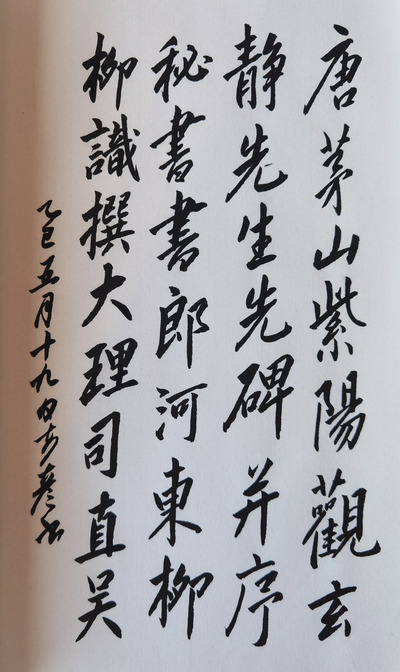 唐茅山紫陽觀玄
靜先生先碑并序
秘書書郎河東柳
柳識撰大理司直吴
乙巳五月十九日